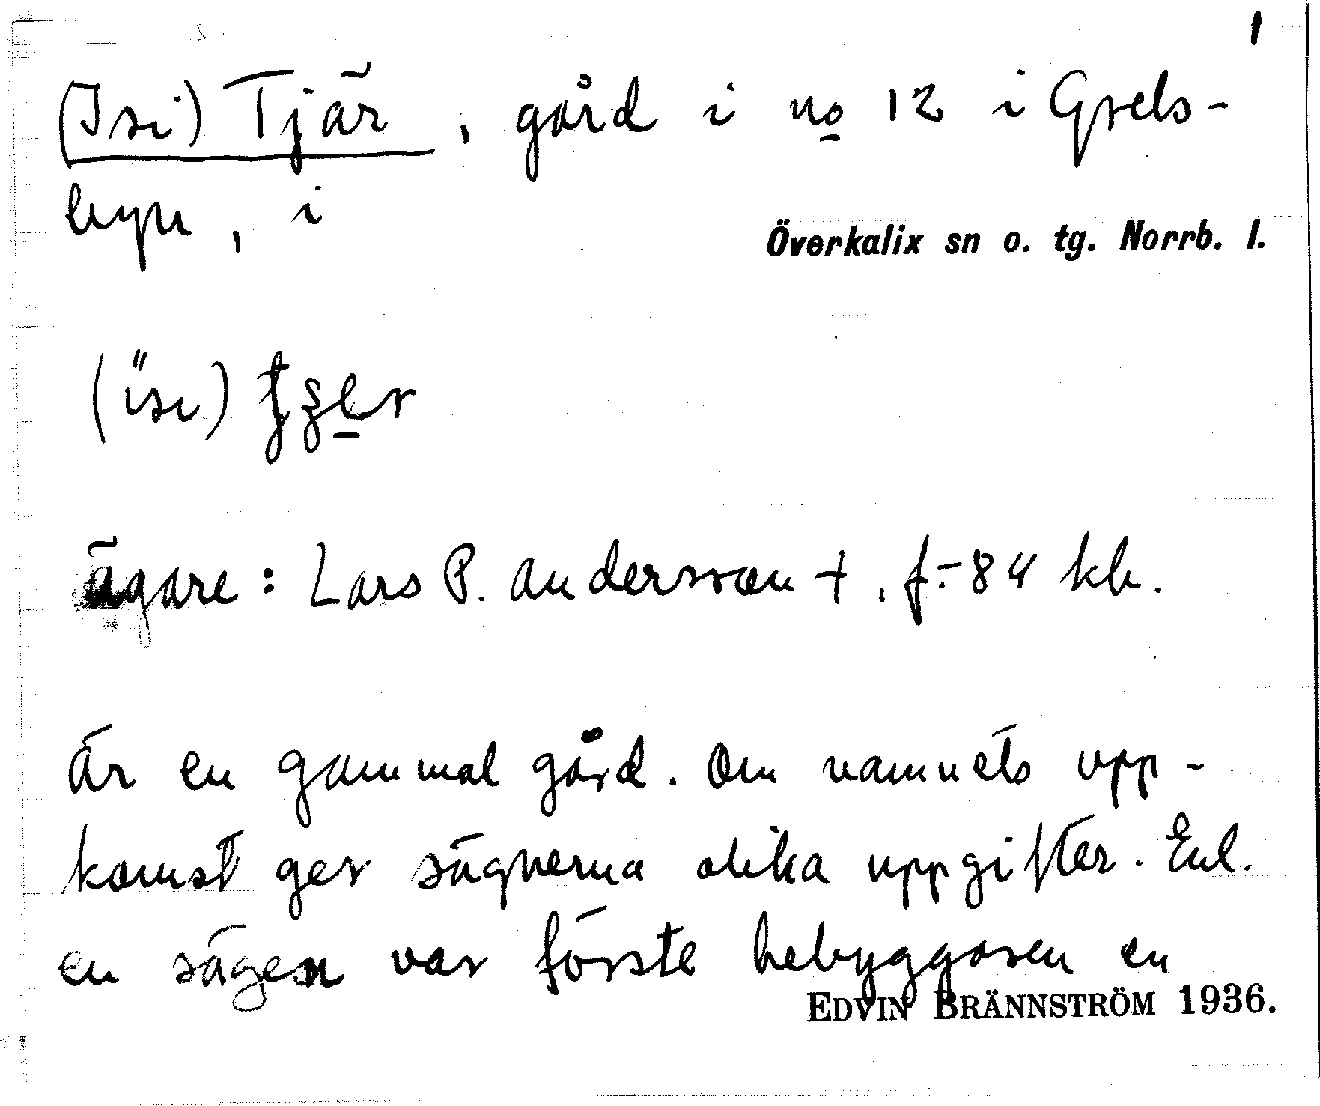 1
(Isi) Tjär, gård i no 12 i Grels-
byn, i
Överkalix sn o. tg. Norrb. l.
(isi)
ägare: Lars P. Andersson +, f. -84 kb.
Är en gammal gård. Om namnets upp-
komst ger sägnerna olika uppgifter. Enl.
en sägen var förste bebyggaren en
EDVIN BRÄNNSTRÖM 1936.